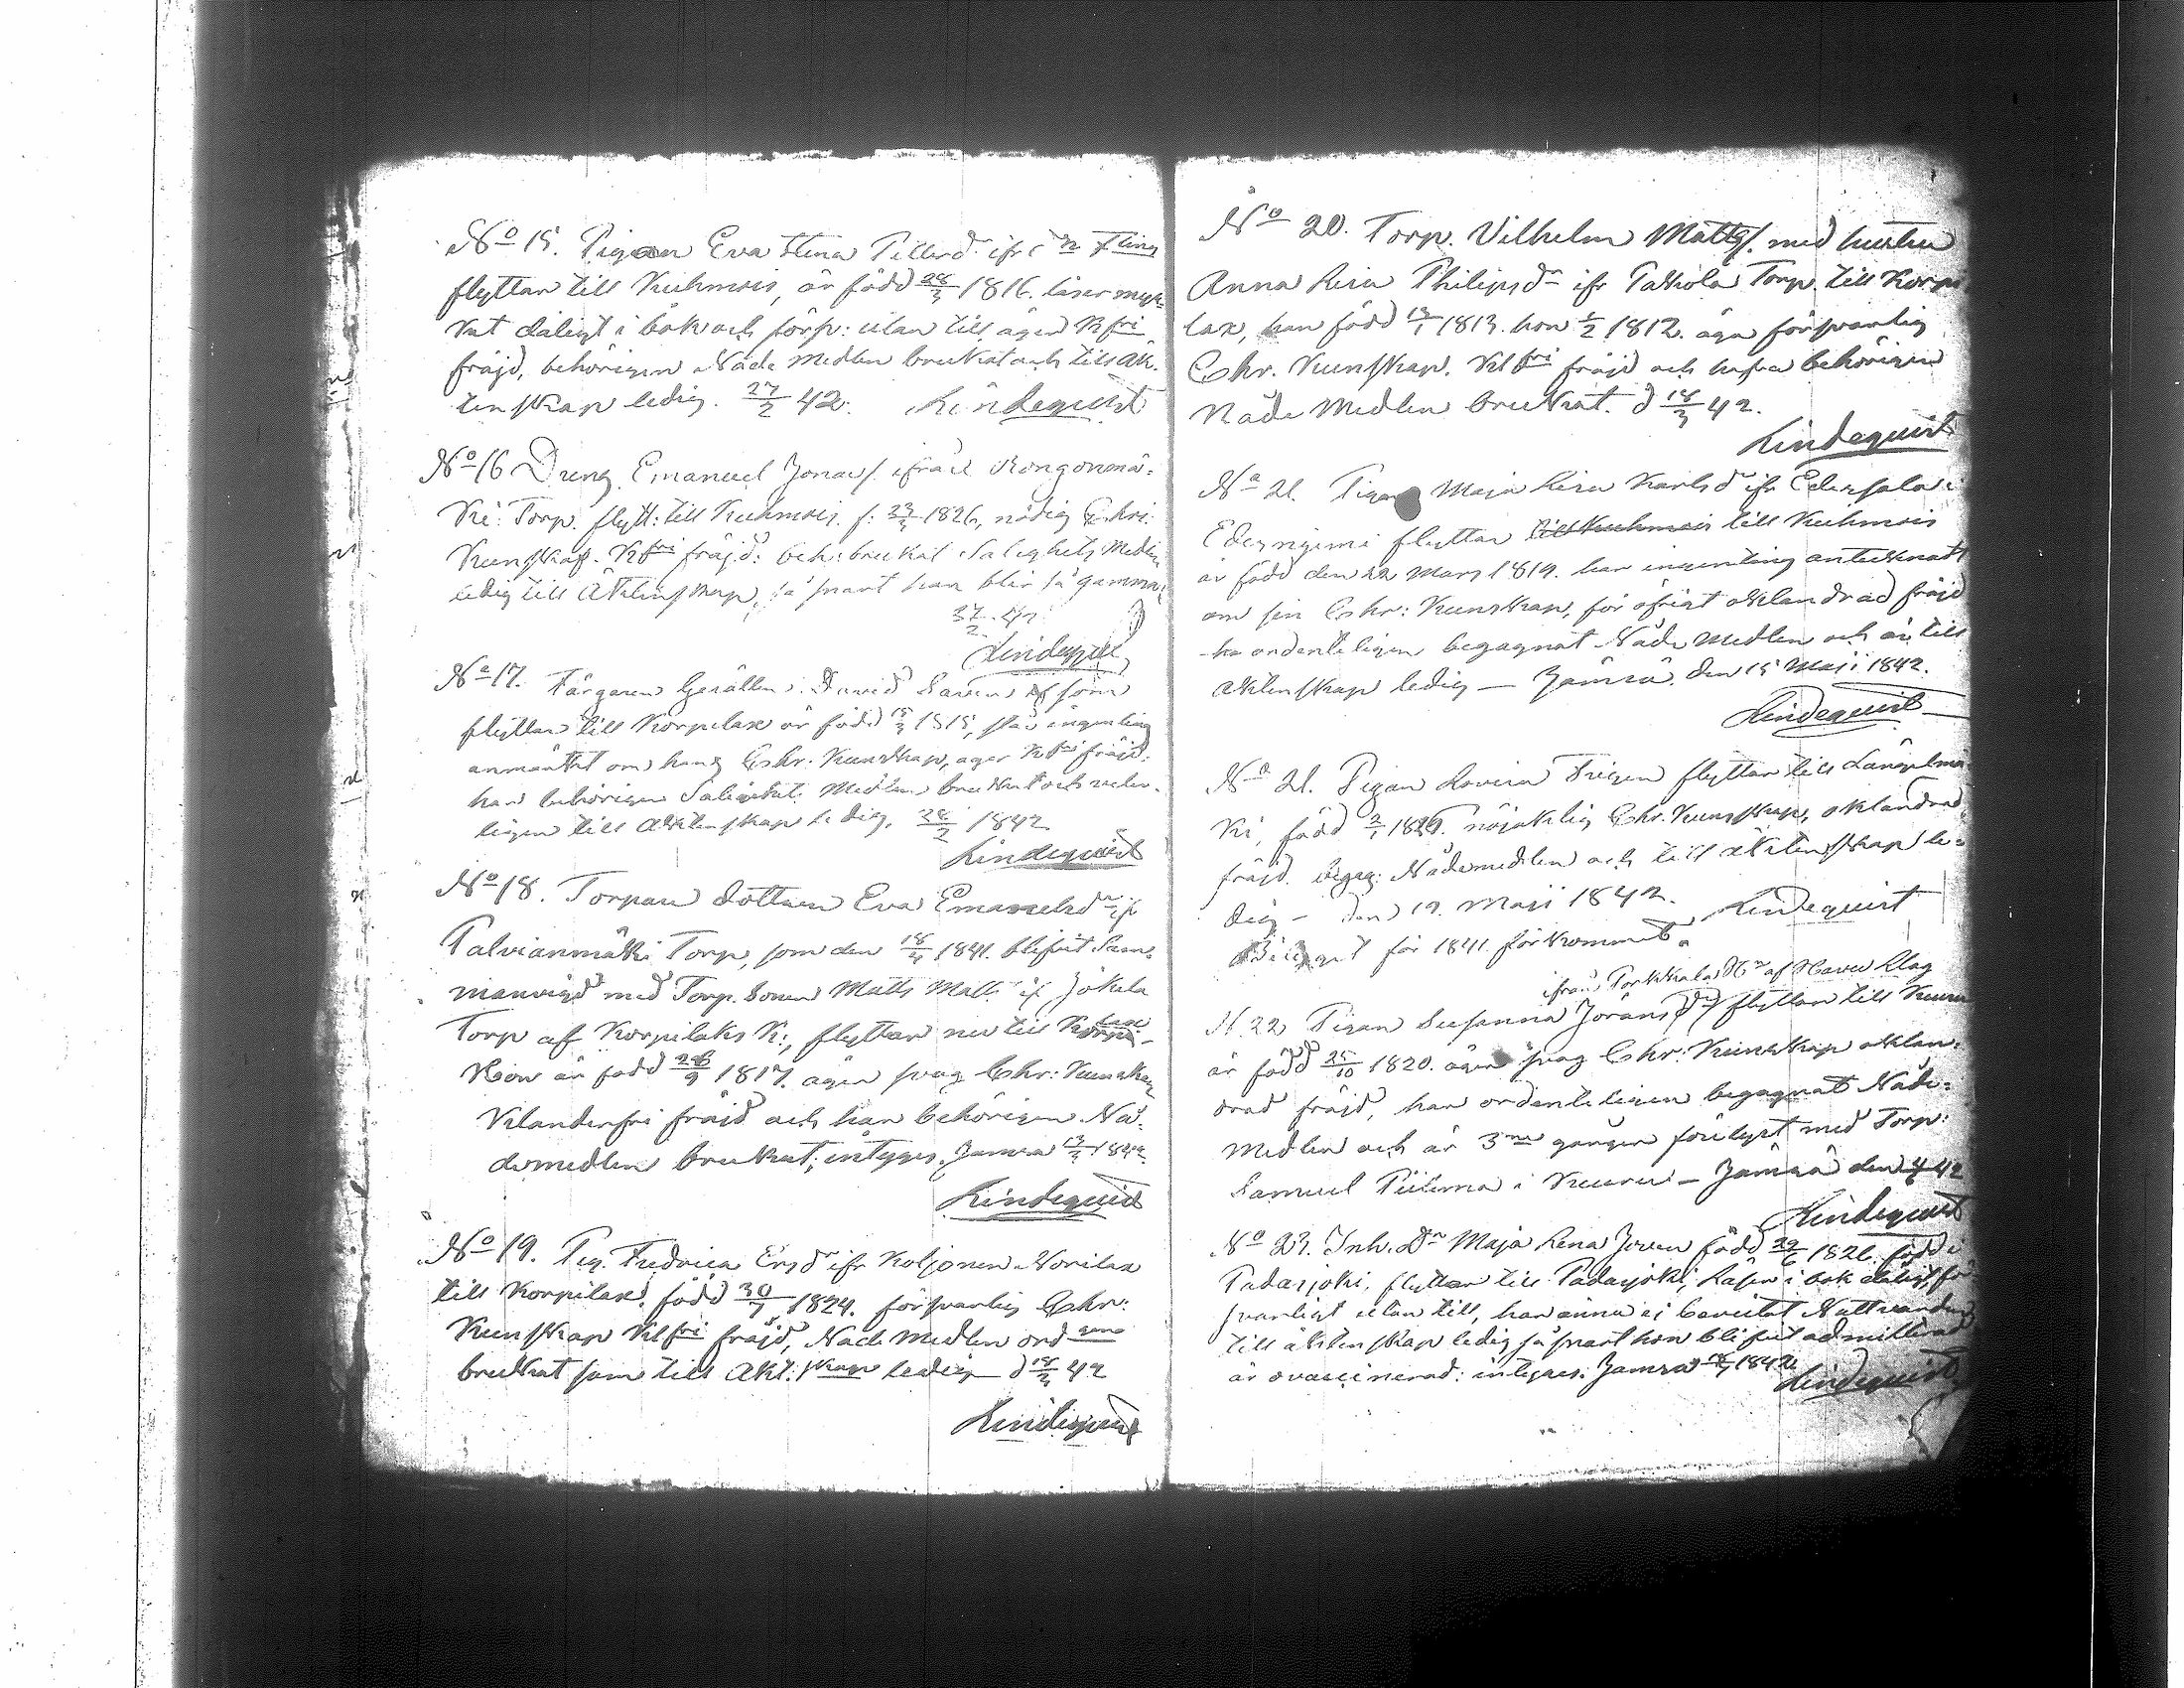 No 15. Pigan Eva Stina Pellsdr ifr
flyttar till Kuhmois, är född 28/3 1816. läser myc-
ket dåligt i bok och förſv: utan till, äger Klfri
fräjd, behörigen Nåde Medlen brukat och till äk-
tenſkap ledig. 27/2 42. Lindequist
No 16 Dreng Emanuel Jonaſs. ifrån Kongonmä-
ki Torp. flytt: till Kuhmois. f: 1826, nödig Chri:
Kunſkap. Klfri fräjd: beh: brukat Salighets Medlen
ledig till Äktenſkap, så ſnart han blir så gammal
27/2 42
Lindequist
No 17. Färgaren Gesällen David Saren som
flyttar till Korpilax är född 15/3 1815, står ingenting
anmärkt om hans Chr. Kunskap, äger Klfri fräjd,
har behörigen Salighets Medlen brukat och veter-
ligen till äktenſkap ledig. 28/2 1842
Lindequist
No 18. Torpare dottern Eva Emanuelsdr ifr
Palvianmäki Torp, som den 18/4 1841. blifvit Sam-
manvigd med Torp. Sonen Matts Matts if Jokela
Torp af Korpilaks K:, flyttar nu till Korpilax
Hon är född 28/9 1817. äger svag Chr: Kunskap
Klanderfri fräjd och har behörigen Nå-
demedlen brukat; intyges. Jämsä 13/3 1842.
Lindequist
No 19. Pig. Fredrica Ersdr ifr Koljonen Norilax
till Korpilax, född 30/7 1824. försvarlig Chr:
Kunſkap Klfri fräjd, Nåde Medlen ordgene
brukat samt till Äkt:ſkap ledig d 18/3 42
Lindequist
No 20. Torp. Vilhelm Mattsſ. med hustru
Anna Lisa Philipsdr ifr Pakkola Torp. till Korpi
lax, han född 13/1 1813. hon 1/2 1812. äga förſvarlig
Chr. Kunſkap. Klfri fräjd och hafva behörigen
Nåde Medlen brukat. d 18/3 42.
Lindequist
No 21. Pigan Maja Lisa Karlsdr ifr Edessalo i
Edesniemi flyttar till Kuhmois till Kuhmois
är född den 22 Mars 1819. har ingenting antecknadt
om sin Chr: Kunskap, för öfrigt oklandrad fräjd
har ordenteligen begagnat Nåde Medlen och är till
äktenſkap ledig — Jämsä den 15 Maji 1842.
Lindequist
No 21. Pigan Lovisa Frigen flyttar till Längelmä
ki, född 2/1 1820. nöjaktig Chr. Kunſkap, oklandrad
fräjd. begag: Nådemedlen och till äktenſkap le-
dig — den 19. Maji 1842. Lindequist
för 1841. förkommit.
ifrån Porkkala Hn af Havu Rlag
N 22 Pigan Susanna Jöransdr flyttar till Keuru
är född 25/10 1820. äger svag Chr: Kunskap oklan-
drad fräjd, har ordenteligen begagnat Nåde-
Medlen och är 3ne gånger förelyst med Torp:
Samuel Piilima i Keuru — Jämsä den 42
Lindequist
No 23. Inh. Dr Maja Lena Joven född 29/6 1826. född i
Padasjoki, flyttar till Padasjoki, läser i bok dåligt, för
svarligt utan till, har ännu ej bevistat Nattvarden
till äktenſkap ledig så ſnart hon blifvit admitterad
är ovaccinerad: intyges. Jämsä 1842
Lindequist